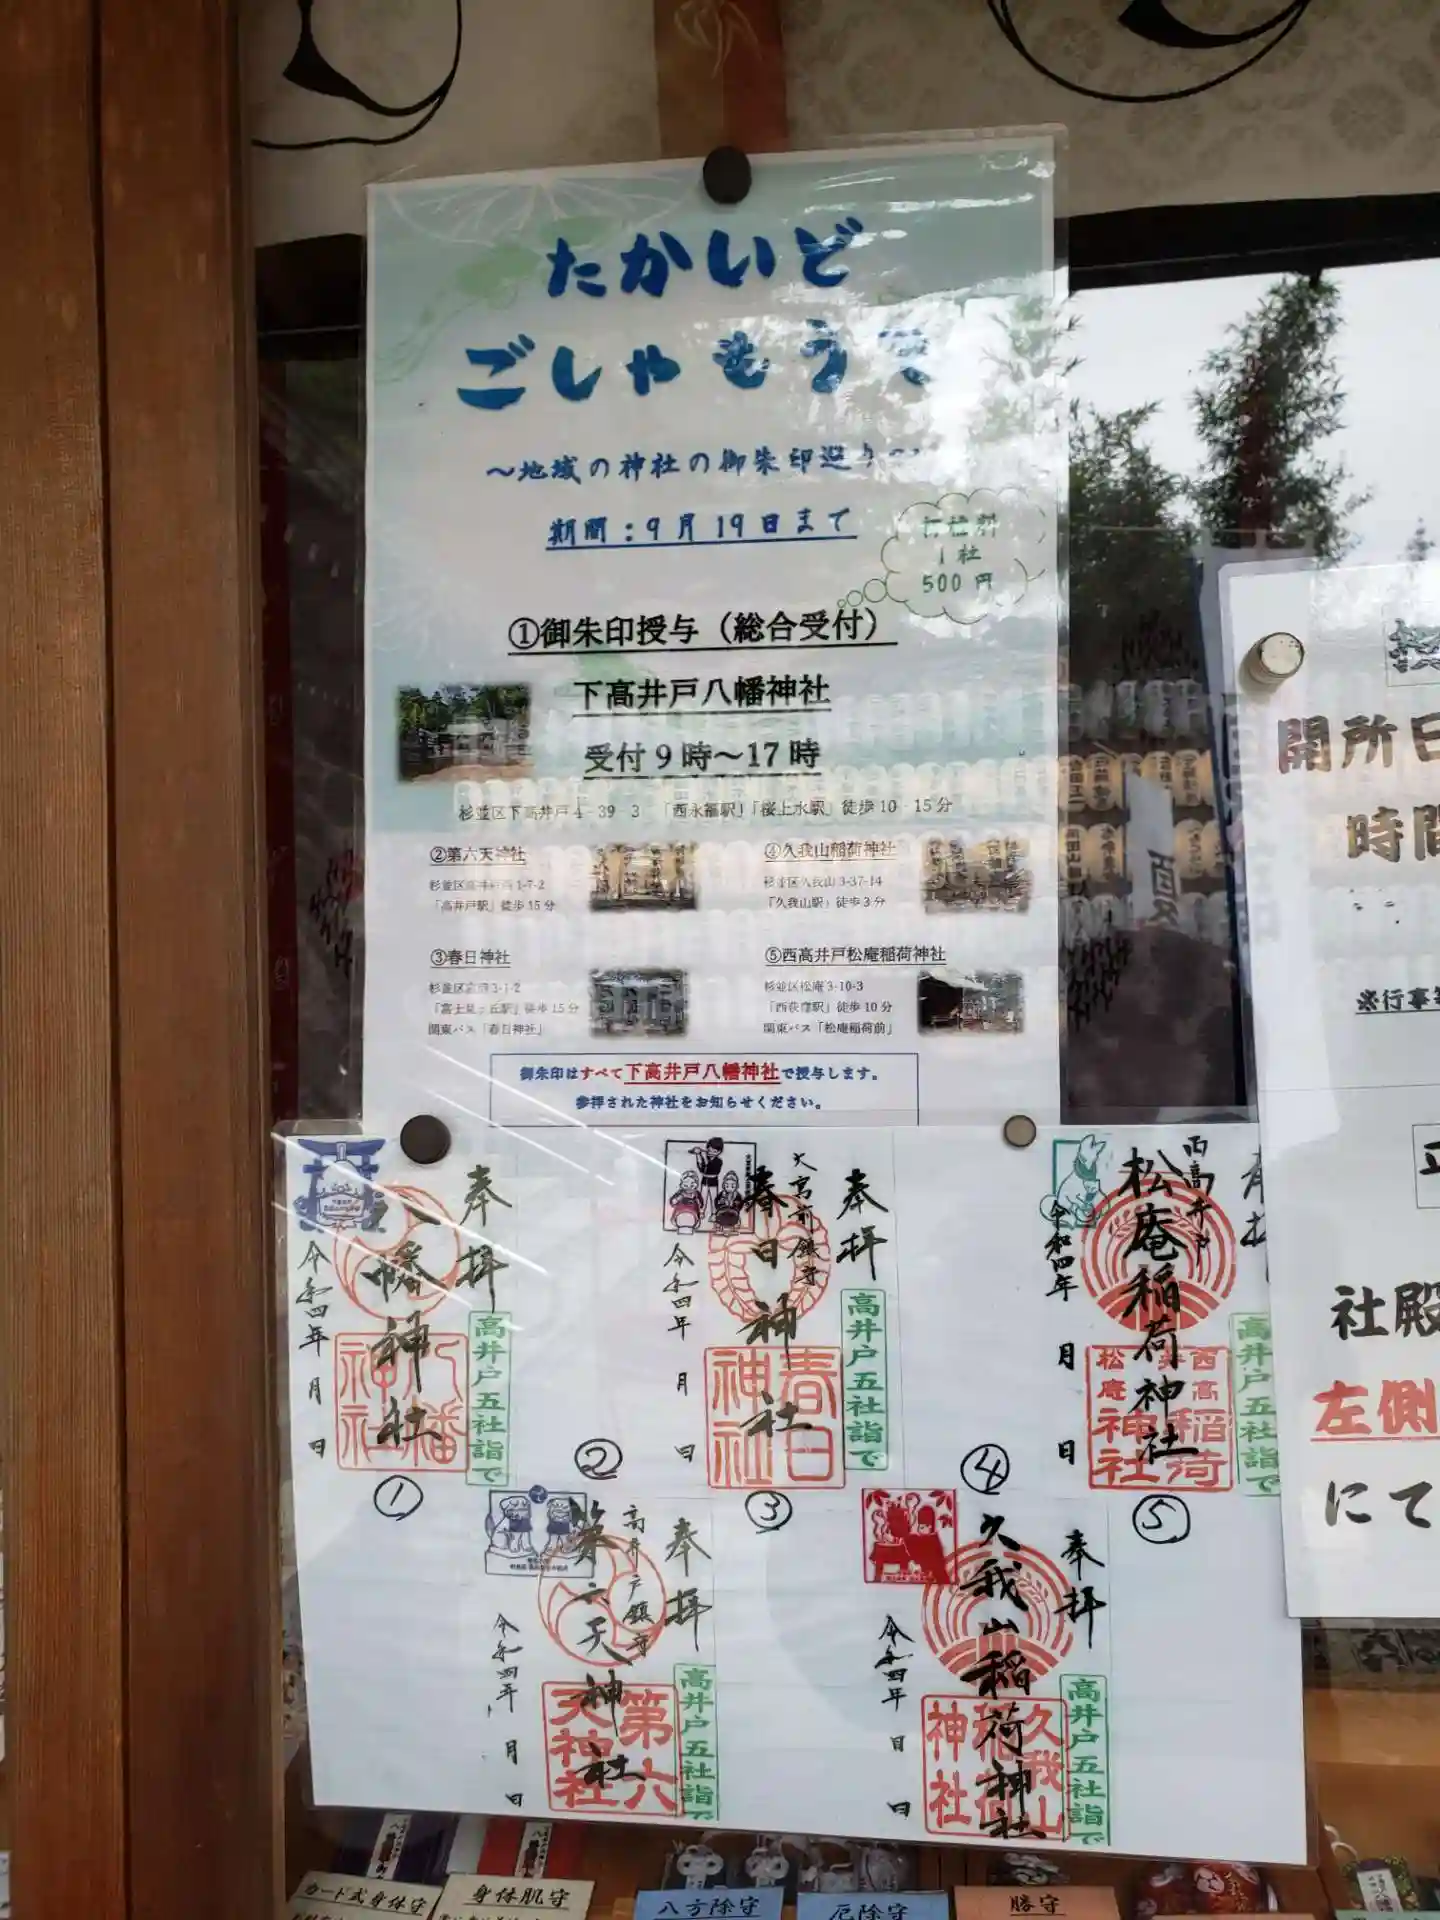 たかいど
ごしゃもうで
～地域の神社の御朱印巡り
期間：9月19日まで
1社
500円
①御朱印授与（総合受付）
下高井戸八幡神社
受付9時～17時
杉並区下高井戸4-39-3 「西永福駅」「桜上水駅」徒歩10-15分
②第六天神社
杉並区高井戸西1-7-2
「高井戸駅」徒歩15分
③春日神社
杉並区宮前3-1-2
「富士見ヶ丘駅」徒歩15分
関東バス「春日神社」
④久我山稲荷神社
杉並区久我山3-37-14
「久我山駅」徒歩3分
⑤西高井戸松庵稲荷神社
杉並区松庵3-10-3
「西荻窪駅」徒歩10分
関東バス「松庵稲荷前」
御朱印はすべて下高井戸八幡神社で授与します。
参拝された神社をお知らせください。
奉拝
八幡神社
令和四年 月 日
八幡神社
高井戸五社詣で
①
奉拝
大宮前鎮守
春日神社
令和四年 月 日
春日神社
高井戸五社詣で
③
西高井戸
松庵稲荷神社
令和四年 月 日
西高井戸松庵稲荷神社
高井戸五社詣で
⑤
②
奉拝
高井戸鎮守
第六天神社
令和四年 月 日
第六天神社
高井戸五社詣で
④
奉拝
久我山稲荷神社
令和四年 月 日
久我山稲荷神社
高井戸五社詣で
開所日
時間
※行事等
社殿
左側
にて
カード式身体守
身体肌守
八方除守
厄除守
勝守